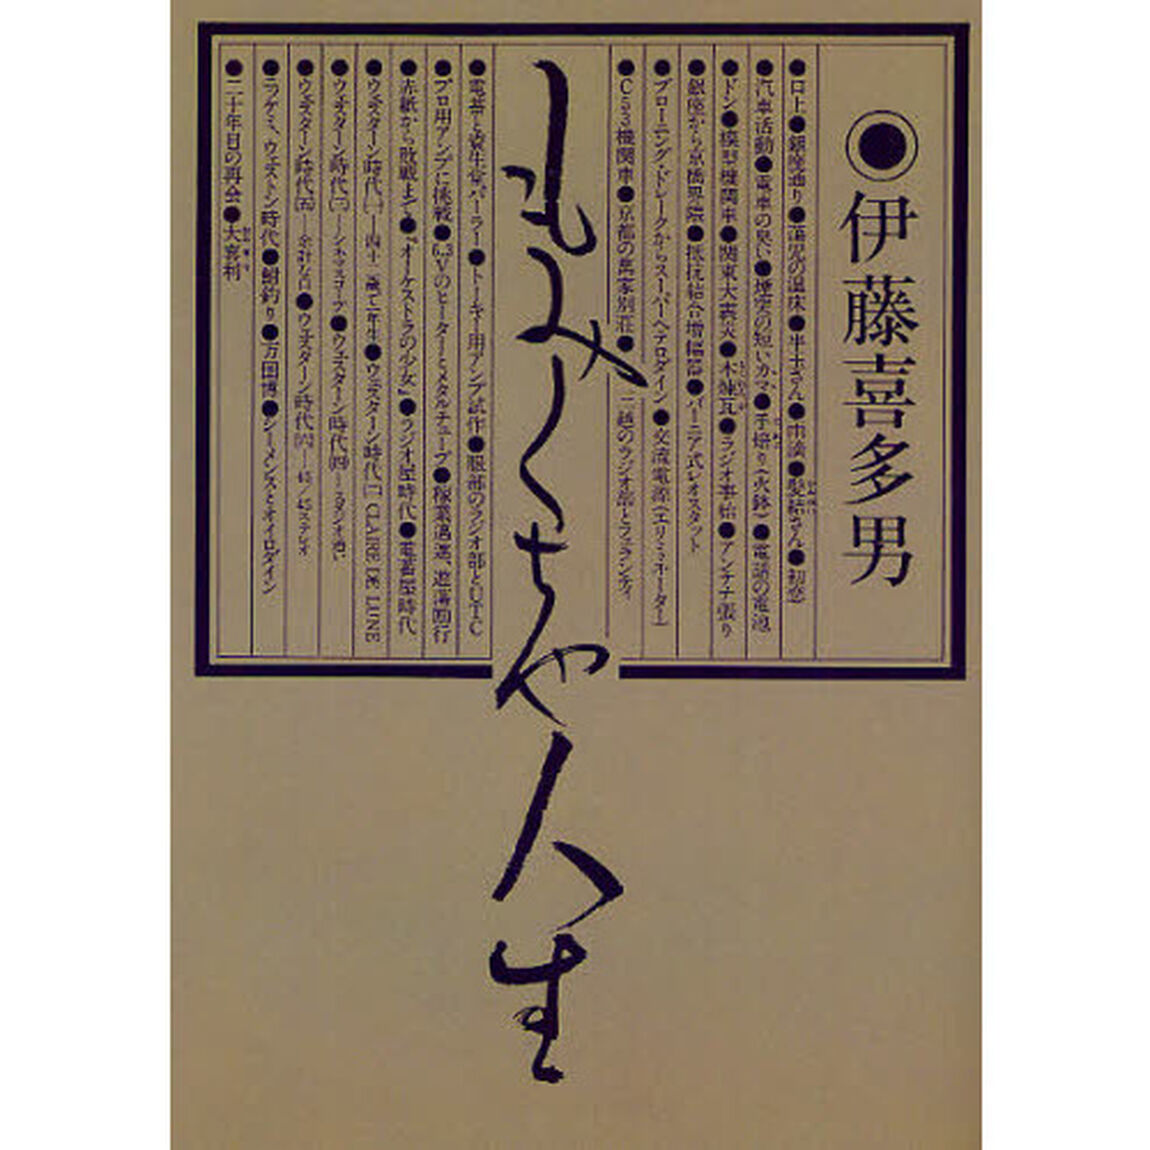 ◉伊藤喜多男
●口上●銀座通り●蕩児の温床●半玉さん●雨漏●髪結さん●初恋
汽車活動●電車の臭い●煙突の短いカマ●手焙り(火鉢)●電話の電池
●ドン●模型機関車●関東大震災●木煉瓦●ラジオ事始●アンテナ張り
●銀座から京橋界隈●抵抗結合増幅器●バーニア式レオスタット
●ブローニング・ドレークからスーパーヘテロダイン●交流電源(エリミネーター)
●C53機関車●京都の萬家別荘●三越のラジオ部とフェランティ
もみくちゃ人生
●電蓄と資生堂パーラー●トーキー用アンプ試作●服部のラジオ部とUTC
●プロ用アンプに挑戦●6.3Vのヒーターとメタルチューブ●稼業過邁、遊蕩四行
●赤紙から敗戦まで●『オーケストラの少女』●ラジオ屋時代●電蓄屋時代
●ウェスターン時代[一]―四十二歳で一年生●ウェスターン時代[二]CLAIRE DE LUNE
●ウェスターン時代[三]―シネマスコープ●ウェスターン時代[四]―スタジオ通い
●ウェスターン時代[五]―余計な口●ウェスターン時代[六]―45/45ステレオ
●ラッケミ、ウェストン時代●鮒釣り●万国博●シーメンスとオイロダイン
●二十年目の再会●大喜利